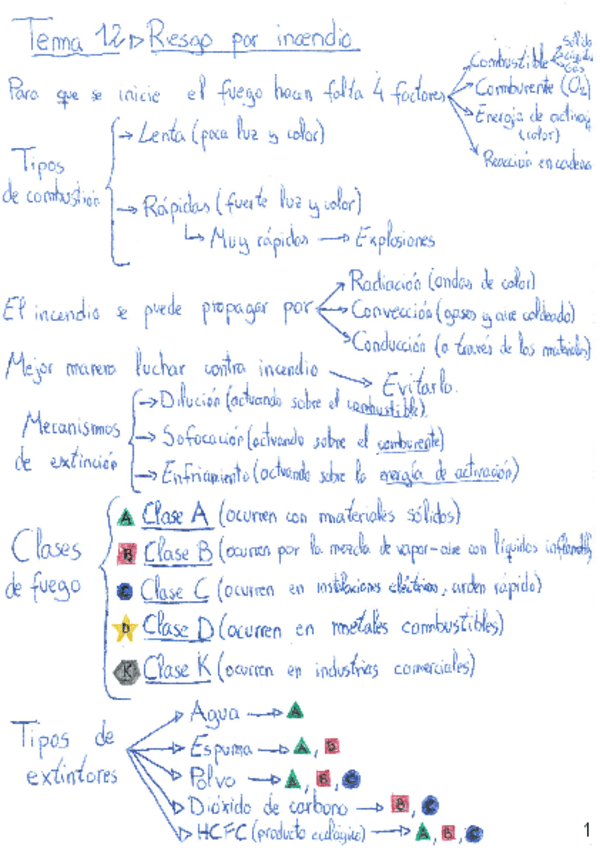 Tema 12 ▷ Riesgo por incendio
Para que se inicie el fuego hacen falta 4 factores
Combustible
Sólido
Líquido
Gas
Comburente (O₂)
Energía de activac
(calor)
Reacción en cadena
Tipos
de combustión
→ Lenta (poca luz y calor)
→ Rápidas (fuerte luz y calor)
↳ Muy rápidas → Explosiones
El incendio se puede propagar por
Radiación (ondas de calor)
Convección (gases y aire caldeado)
Conducción (a través de los materiales)
Mejor manera luchar contra incendio → Evitarlo.
Mecanismos
de extinción
→ Dilución (actuando sobre el combustible).
→ Sofocación (actuando sobre el comburente)
→ Enfriamiento (actuando sobre la energía de activación)
Clases
de fuego
A Clase A (ocurren con materiales sólidos)
B Clase B (ocurren por la mezcla de vapor-aire con líquidos inflamables
C Clase C (ocurren en instalaciones eléctricas, arden rápido)
D Clase D (ocurren en metales combustibles)
K Clase K (ocurren en industrias comerciales)
Tipos de
extintores
Agua → A
Espuma → A, B
Polvo → A, B, C
Dióxido de carbono → B, C
HCFC (producto ecológico) → A, B, C
1